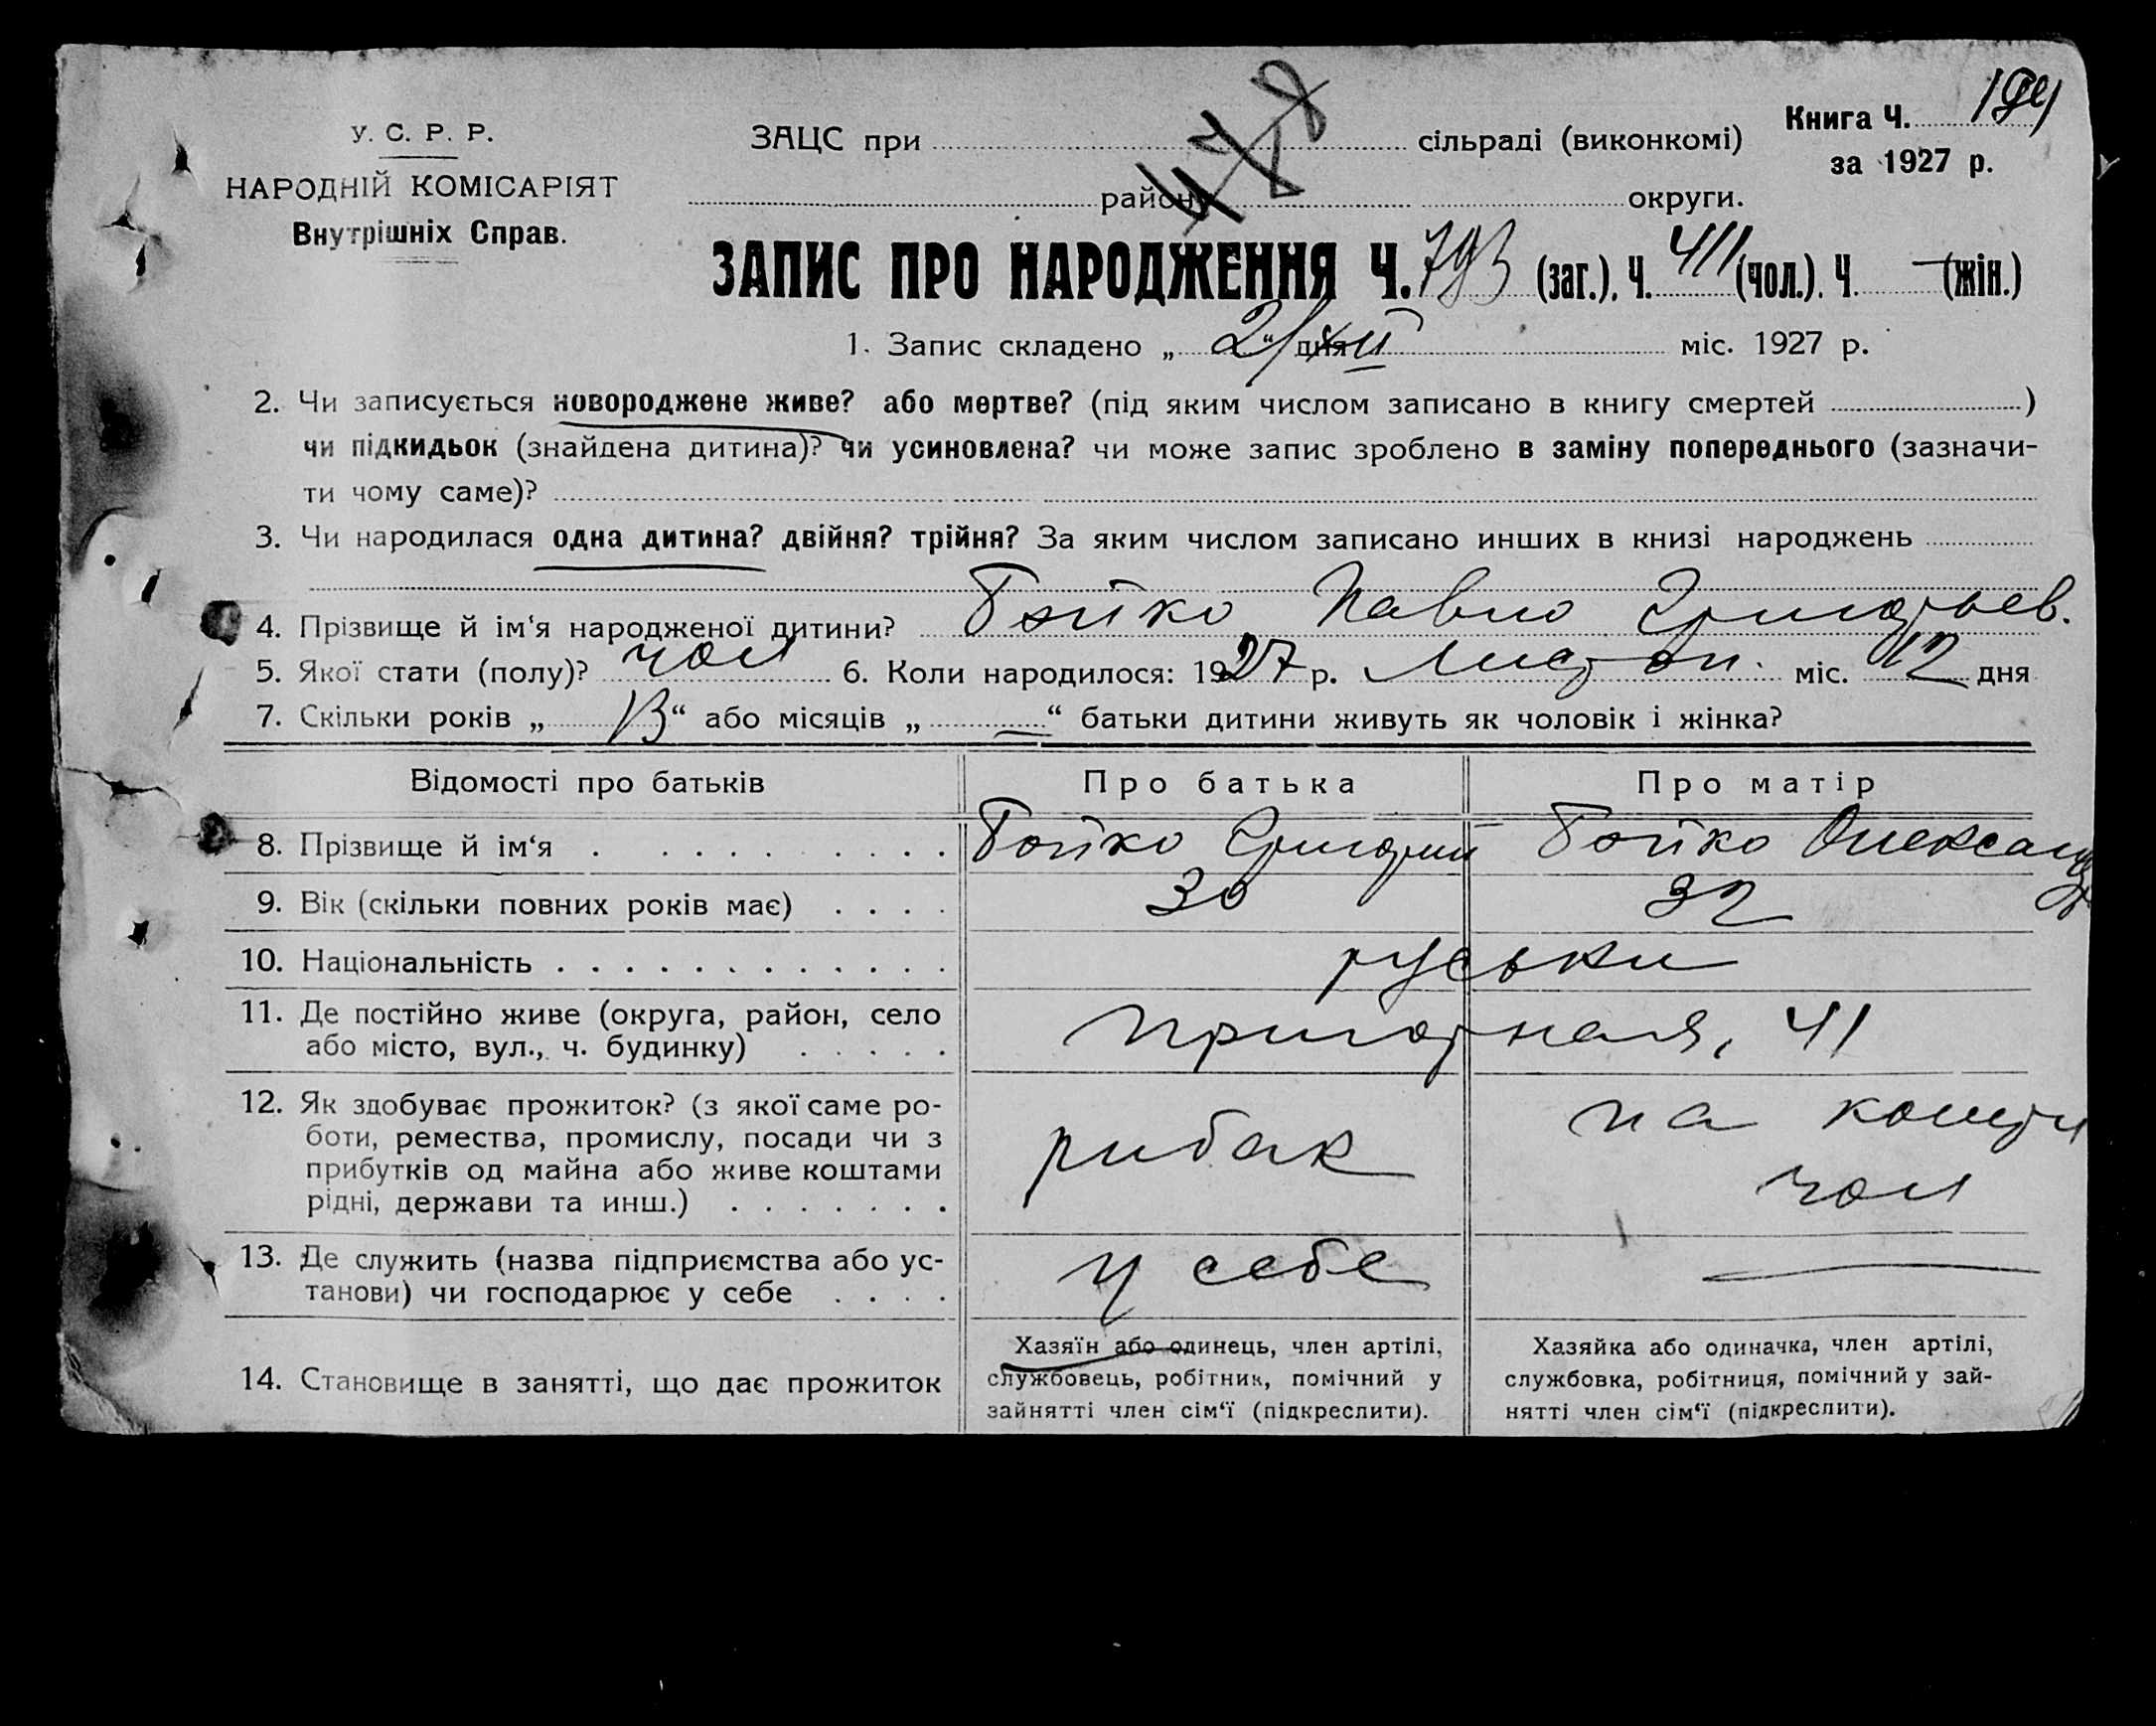 У. С. Р. Р.
НАРОДНІЙ КОМІСАРІЯТ
Внутрішніх Справ.
ЗАЦС при сільраді (виконкомі)
район округи.
478
Книга Ч.
за 1927 р.
ЗАПИС ПРО НАРОДЖЕННЯ Ч. 793 (заг.). Ч. 411 (чол.). Ч. — (жін.)
1. Запис складено „ 2 “ дня XII міс. 1927 р.
2. Чи записується новороджене живе? або мертве? (під яким числом записано в книгу смертей )
чи підкидьок (знайдена дитина)? чи усиновлена? чи може запис зроблено в заміну попереднього (зазначи-
ти чому саме)?
3. Чи народилася одна дитина? двійня? трійня? За яким числом записано инших в книзі народжень
4. Прізвище й ім‘я народженої дитини? Бойко Павло Григорьев.
5. Якої стати (полу)? чол 6. Коли народилося: 1927 р. Листоп. міс. 12 дня
7. Скільки років „ 13 “ або місяців „ — “ батьки дитини живуть як чоловік і жінка?
Відомості про батьків Про батька Про матір
8. Прізвище й ім‘я Бойко Григорий Бойко Олександр
9. Вік (скільки повних років має) 30 32
10. Національність руськи
11. Де постійно живе (округа, район, село
або місто, вул., ч. будинку) Пригорная, 41
12. Як здобуває прожиток? (з якої саме ро-
боти, ремества, промислу, посади чи з
прибутків од майна або живе коштами
рідні, держави та инш.) рибак на кошти
чол
13. Де служить (назва підприємства або ус-
танови) чи господарює у себе у себе —
14. Становище в занятті, що дає прожиток
Хазяїн або одинець, член артілі,
службовець, робітник, помічний у
зайнятті член сім‘ї (підкреслити).
Хазяйка або одиначка, член артілі,
службовка, робітниця, помічний у зай-
нятті член сім‘ї (підкреслити).